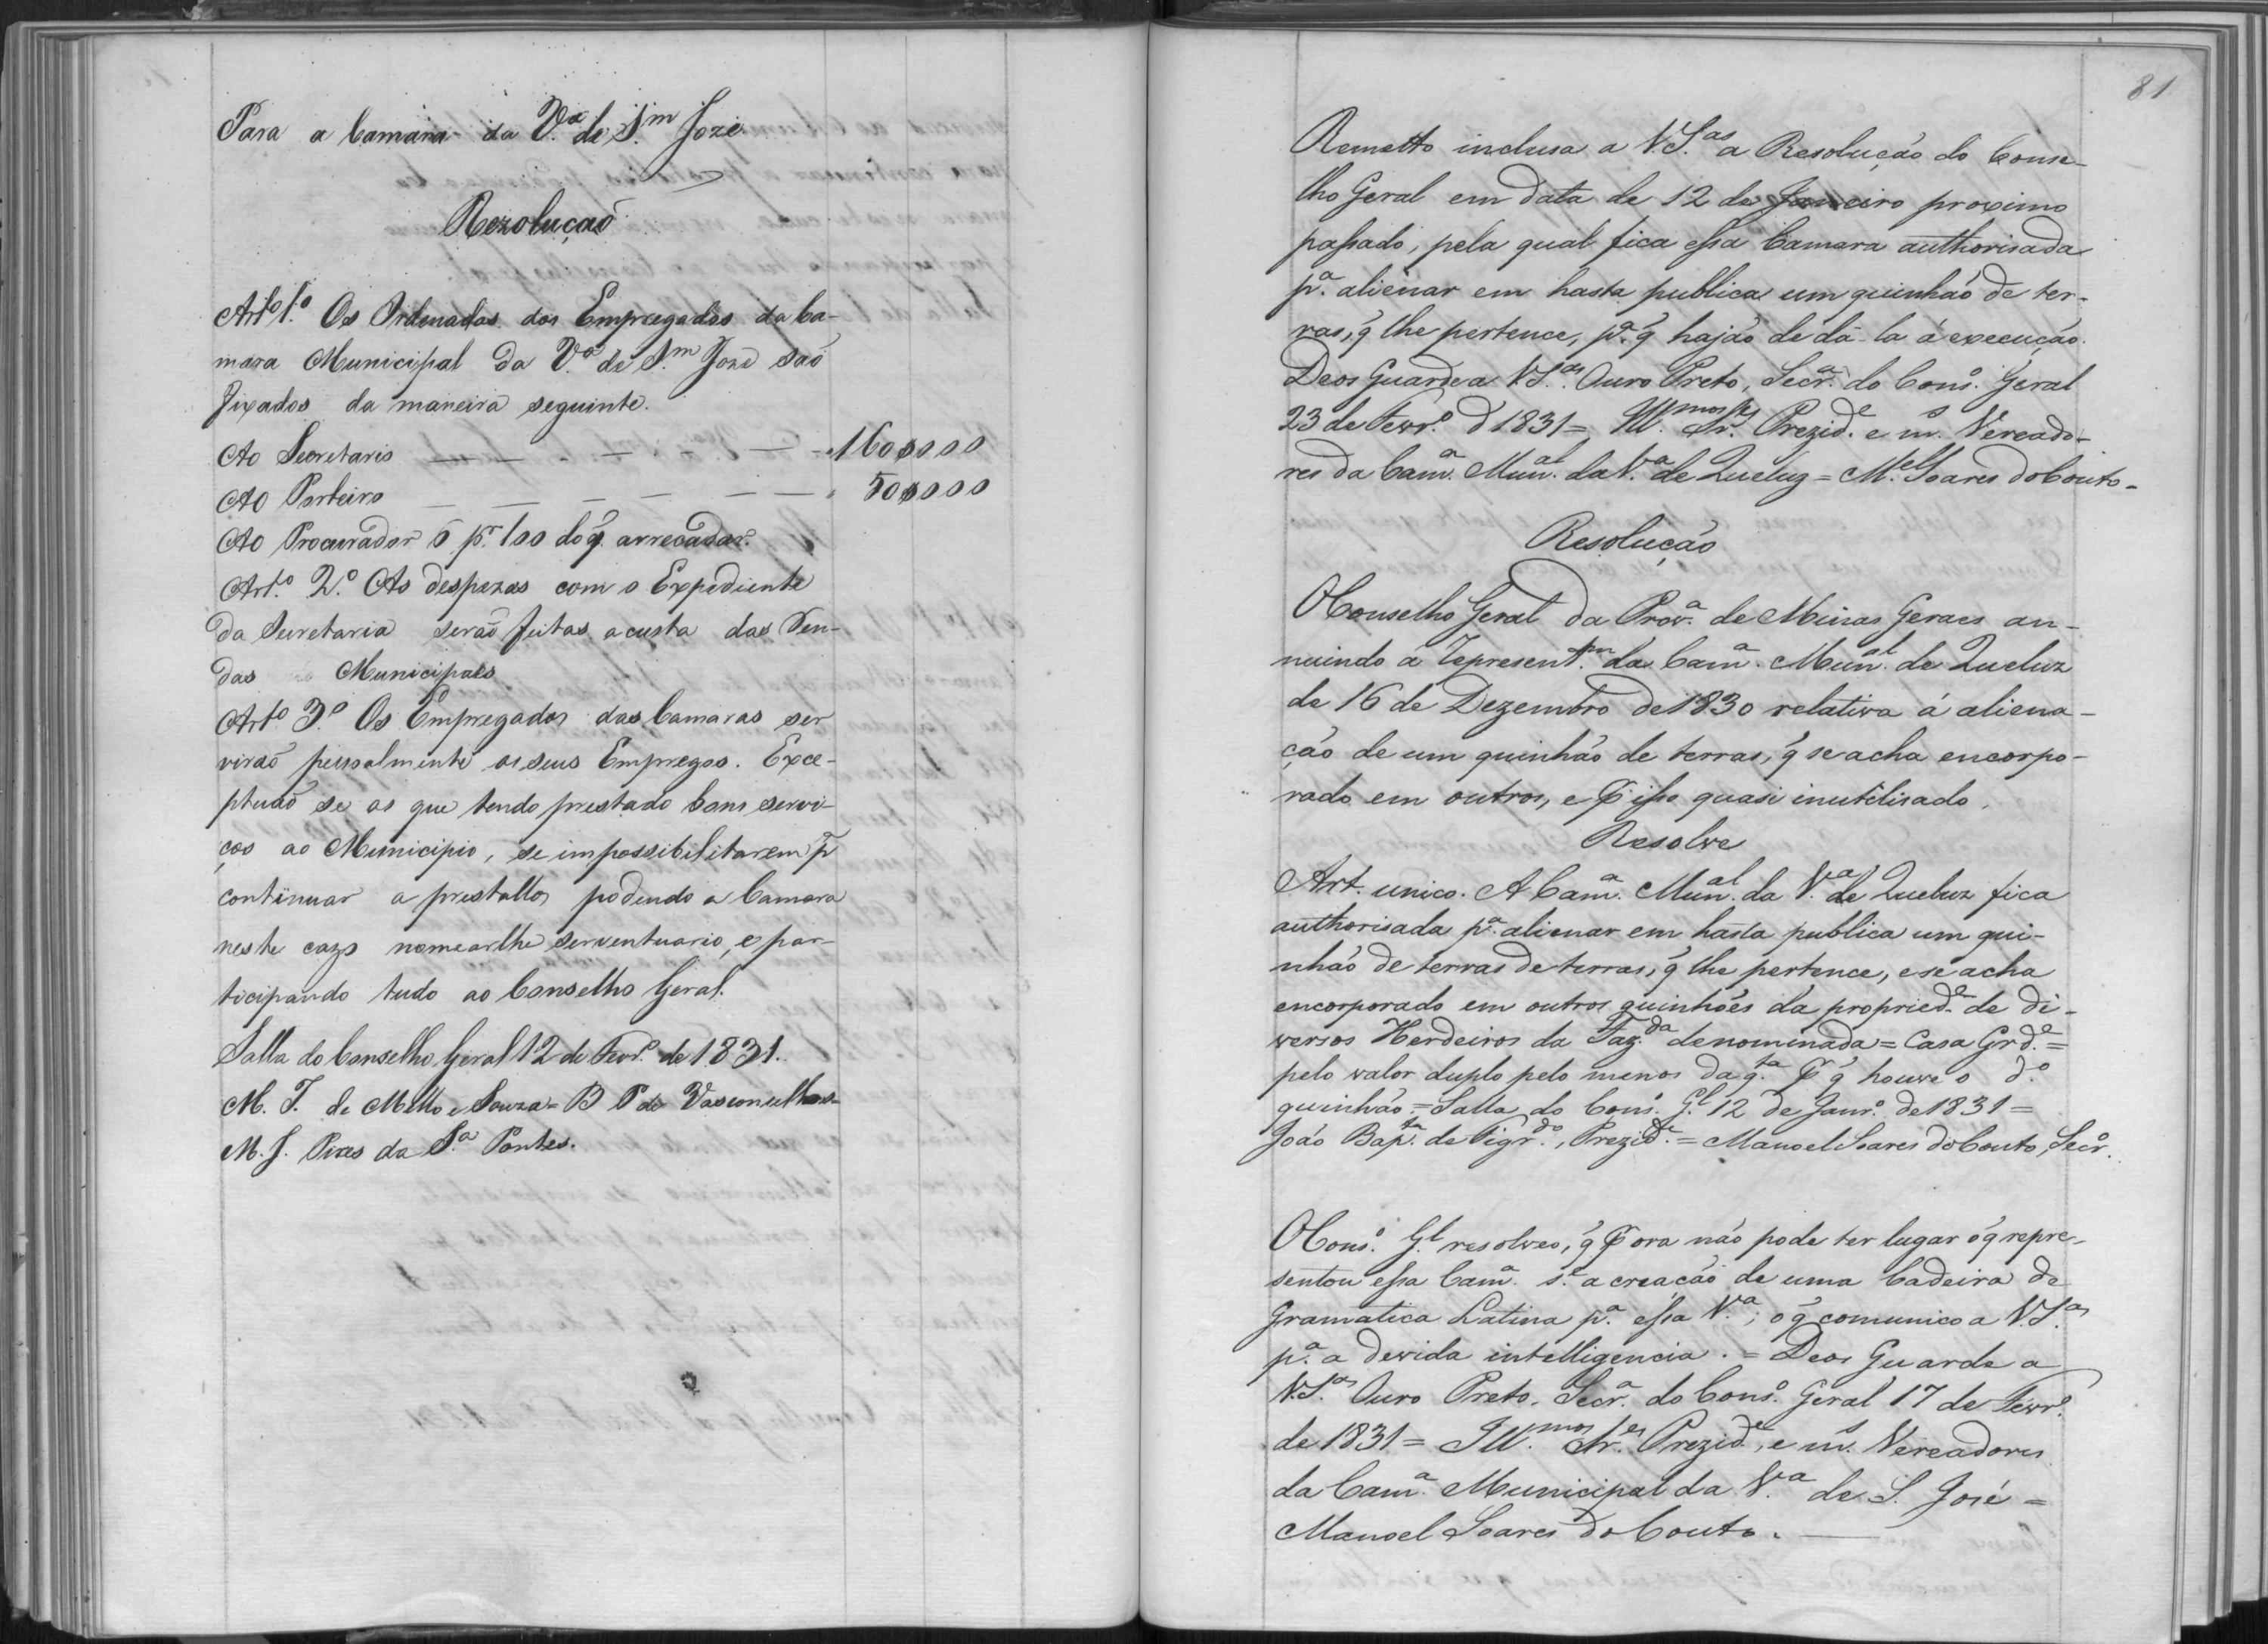 Para a Camara da V.ª de S.m Jozé
Rezoluçaõ
Art.º 1.º Os Ordenados dos Empregados da Ca-
mara Municipal da V.ª de S.m José saõ
fixados da maneira seguinte.
Ao Secretario — — — — — 160$000
Ao Porteiro — — — — — 50$000
Ao Procurador 6 p.r 100 do q̃ arrecadar.
Art.º 2.º As despezas com o Expediente
da Secretaria seraõ feitas a custa das Ren-
das Municipaes
Art.º 3.º Os Empregados das Camaras ser
viraõ pessoalmente os seus Empregos. Exce-
ptuaõ se os que tendo prestado bons servi-
ços ao Municipio, se impossibilitarem p
continuar a prestallos podendo a Camara
neste cazo nomearlhe serventuario, e par-
ticipando tudo ao Conselho Geral.
Salla do Conselho Geral 12 de Fevr.º de 1831.
M. I. de Mello e Souza = B P de Vasconcellos =
M. J. Pires da S.ª Pontes.
81
Remetto inclusa a V.S.as a Resolução do Conse-
lho Geral em data de 12 de Janeiro proximo
passado, pela qual fica essa Camara authorisada
p.ª alienar em hasta publica um quinhão de ter-
ras, q̃ lhe pertence, p.ª q̃ hajão de dá-la á execução.
Deos Guarde a V.S.as Ouro Preto, Secr.ª do Cons.º Geral
23 de Fevr.º d 1831 = Ill.mos Sr.es Prezid.e e m.s Vereado-
res da Cam.ª Mun.al da V.ª de Queluz = M.el Soares do Couto -
Resolução
O Conselho Geral da Prov.ª de Minas Geraes an-
nuindo á representm. da Cam.ª Mun.al de Queluz
de 16 de Dezembro de 1830 relativa á aliena-
ção de um quinhão de terras, q̃ se acha encorpo-
rado em outros, e p isso quasi inutilisado.
Resolve
Art. unico. A Cam.ª Mun.al da V.ª de Queluz fica
authorisada p.ª alienar em hasta publica um qui-
nhão de terras de terras, q̃ lhe pertence, e se acha
encorporado em outros quinhões da propried.e de di-
versos Herdeiros da Faz.da denominada = Casa Grd.e =
pelo valor duplo pelo menos da q.ta p q̃ houve o d.º
quinhão = Salla do Cons.º G.l 12 de Janr.º de 1831 =
João Bap.ta de Figr.do, Prezid.te = Manoel Soares do Couto, Secr.º
O Cons.º G.l resolveo, q̃ p ora não pode ter lugar o q̃ repre-
sentou essa Cam.ª s.e a creação de uma Cadeira de
Gramatica Latina p.ª essa V.ª; o q̃ comunico a V.S.as
p.ª a devida intelligencia. = Deos Guarde a
V.S.as Ouro Preto. Secr.ª do Cons.º Geral 17 de Fevr.º
de 1831 = Ill.mos Sr.es Prezid.e, e m.s Vereadores
da Cam.ª Municipal da V.ª de S. José =
Manoel Soares do Couto. —